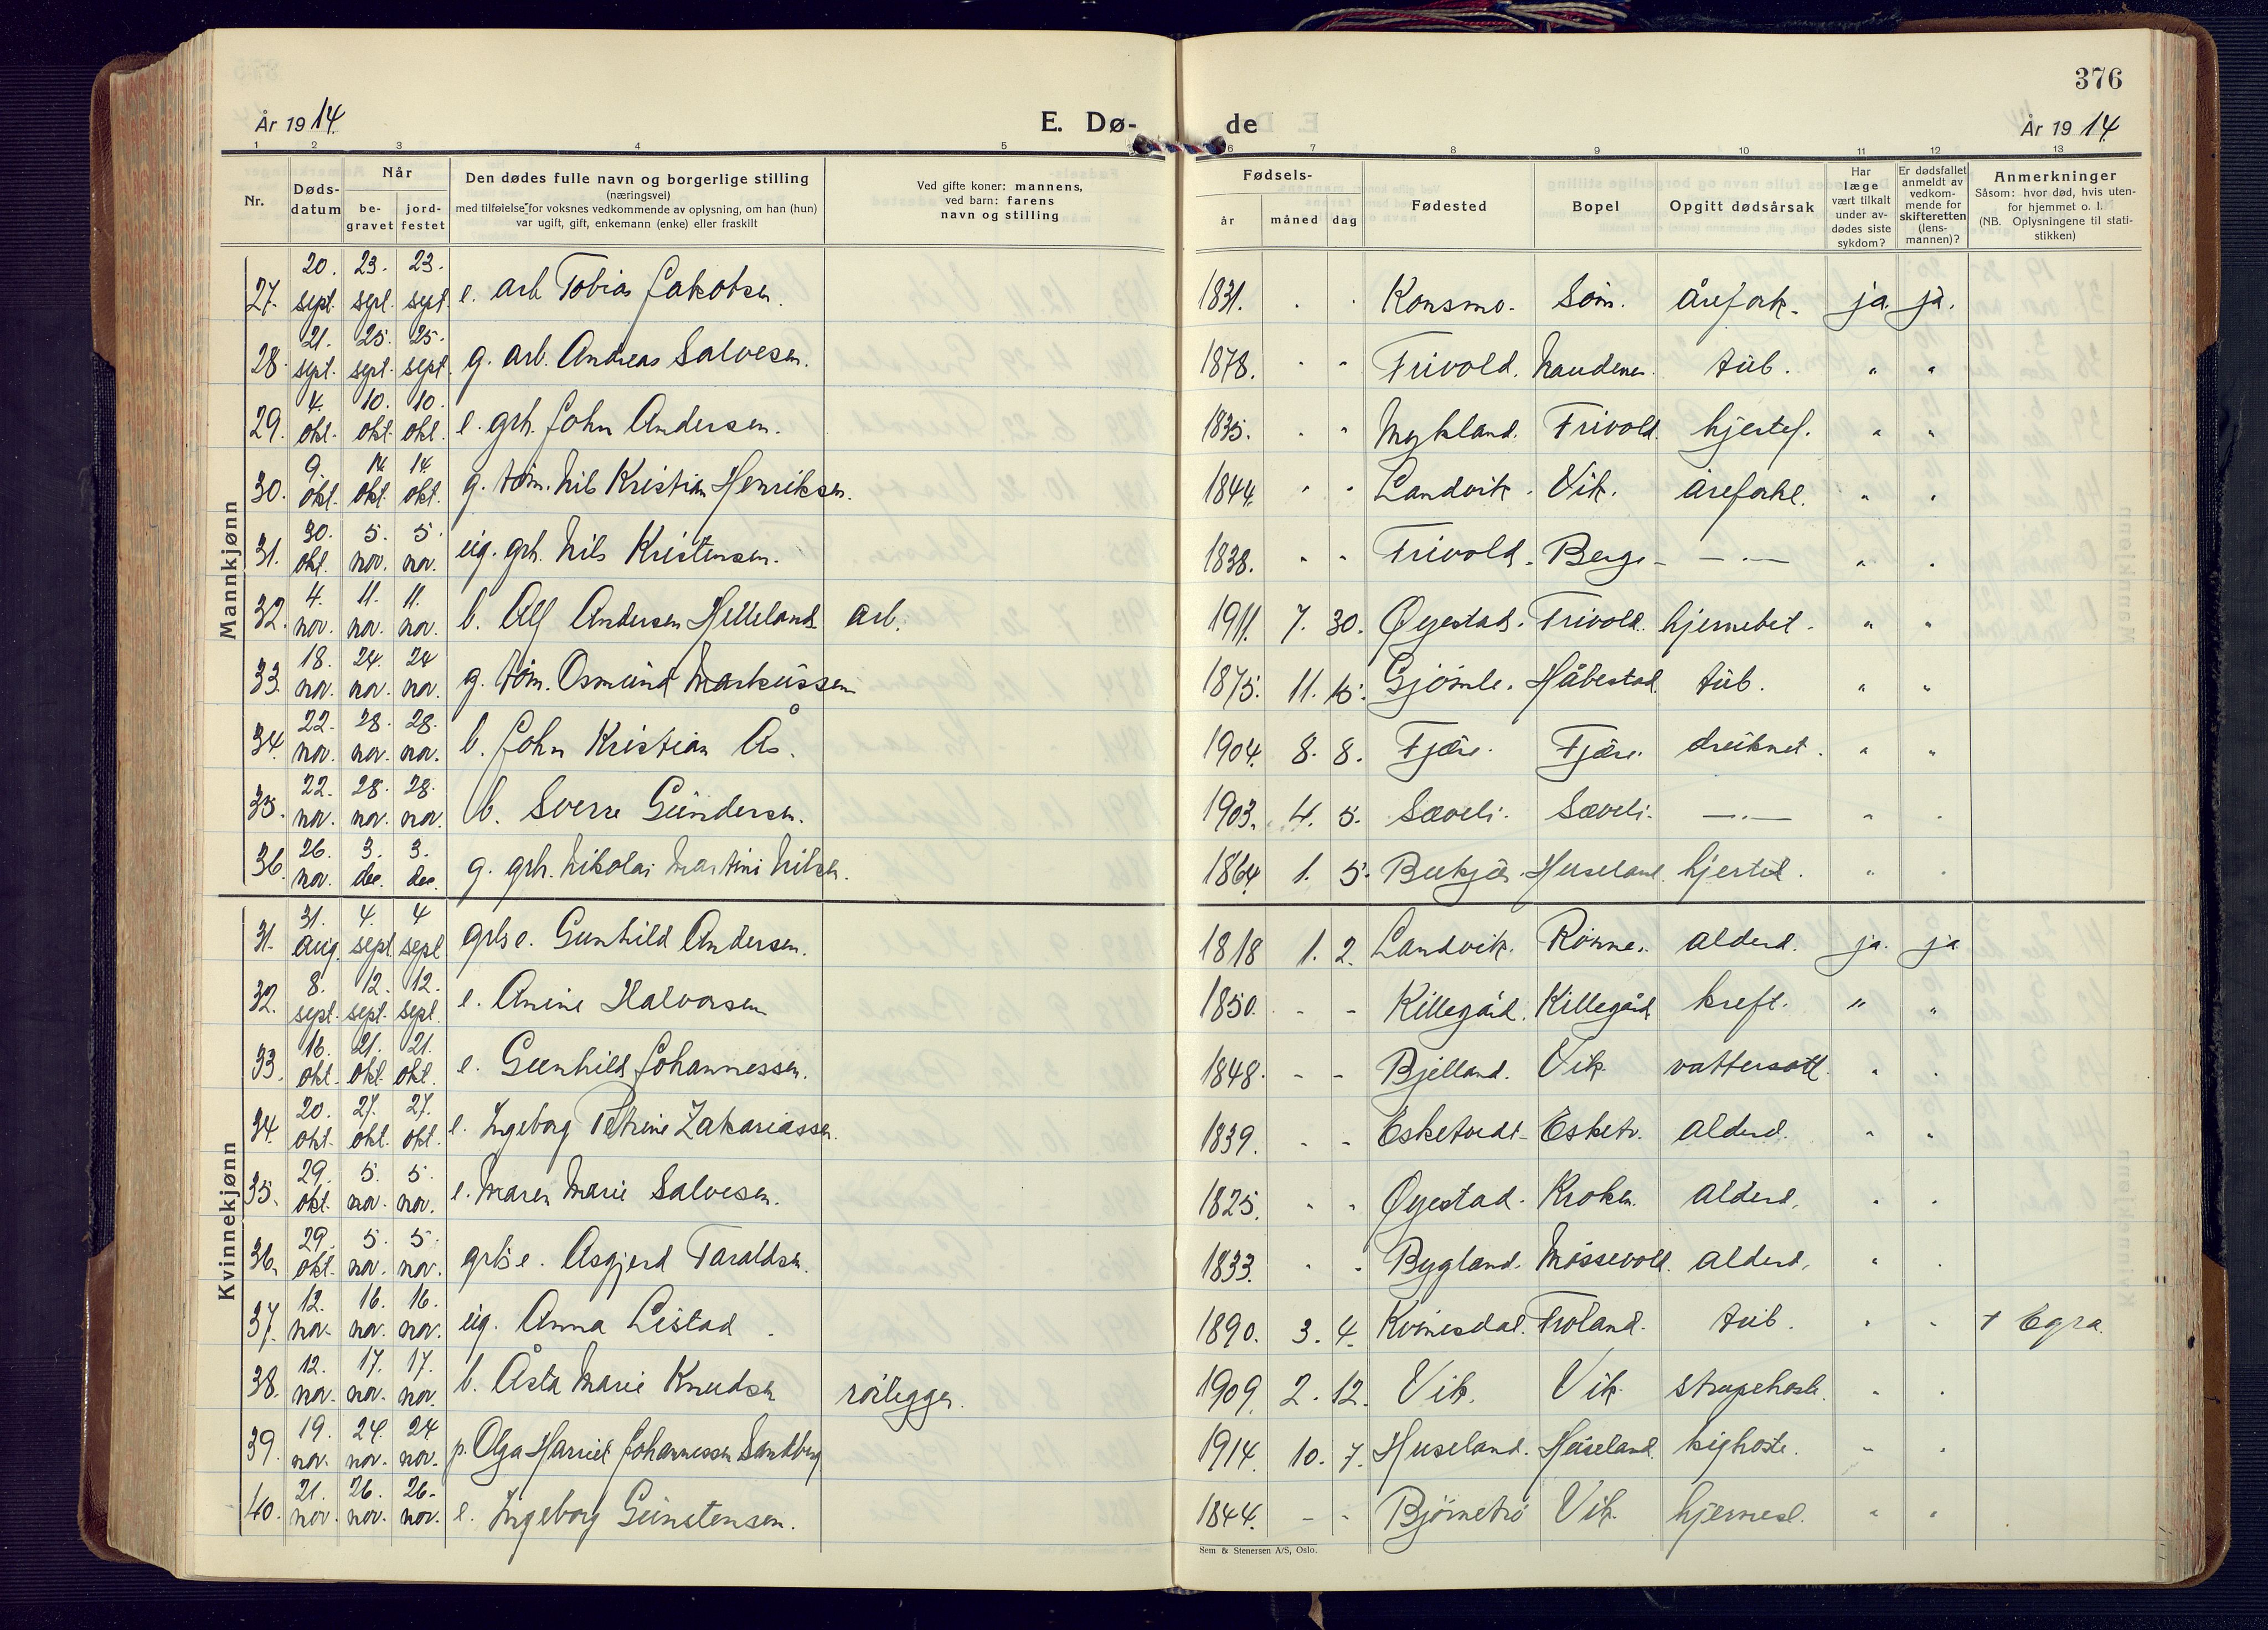 376
År 1914.
E. Dø-
de
År 1914.
1 2 3 4 5 6 7 8 9 10 11 12 13
Nr.
Døds-
datum
Når
be-
gravet
jord-
festet
Den dødes fulle navn og borgerlige stilling
(næringsvei)
med tilføielse for voksnes vedkommende av oplysning, om han (hun)
var ugift, gift, enkemann (enke) eller fraskilt
Ved gifte koner: mannens,
ved barn: farens
navn og stilling
Fødsels-
år måned dag
Fødested
Bopel
Opgitt dødsårsak
Har
læge
vært tilkalt
under av-
dødes siste
sykdom?
Er dødsfallet
anmeldt av
vedkom-
mende for
skifteretten
(lens-
mannen)?
Anmerkninger
Såsom: hvor død, hvis uten-
for hjemmet o. l.
(NB. Oplysningene til stati-
stikken)
Mannkjønn
27. 20. sept. 23. sept. 23. sept. e. arb. Tobias Jakobsen. 1831. . . Konsmo. Søm. årefork. ja. ja.
28. 21. sept. 25. sept. 25. sept. g. arb. Andreas Salvesen. 1878. - - Frivold. tub. " "
29. 4. okt. 10. okt. 10. okt. e. grb. John Andersen. 1835. - - Mykland. Frivold. hjertef. " "
30. 9. okt. 14. okt. 14. okt. g. tøm. Nils Kristian Henriksen. 1844. " " Landvik. Vik. åreforkl. " "
31. 30. okt. 5. nov. 5. nov. ug. grb. Nils Kristensen. 1838. " " Frivold. Berge —.— " "
32. 4. nov. 11. nov. 11. nov. b. Alf Andersen Helleland. arb. 1911. 7. 30. Øyestad. Frivold. hjernebet. " "
33. 18. nov. 24. nov. 24 nov. g. tøm. Osmund Markussen 1875. 11. 15. Gjømle. Håbestad. tub. " "
34. 22. nov. 28. nov. 28. nov. b. John Kristian Ås. 1904. 8. 8. Fjære. Fjære. druknet. " "
35. 22. nov. 28. nov. 28. nov. b. Sverre Gundersen. 1903. 4. 5. Sæveli. Sæveli. —.— " "
36. 26. nov. 3. des. 3. des. g. grb. Nikolai Martini Nilsen. 1864 1. 5. Huseland. " "
Kvinnekjønn
31. 31. aug. 4. sept. 4 sept grbs e. Gunhild Andersen. 1818 1. 2. Landvik. Rønnes. alderd. ja. ja
32. 8. sept. 12. sept. 12. sept. e. Anine Halvorsen 1850. - - Killegård. Killegård kreft. " "
33. 16. okt. 21. okt. 21. okt. e. Gunhild Johannessen. 1848. - - Bjelland. Vik. vattersott. " "
34. 20. okt. 27. okt. 27. okt. e. Ingeborg Petrine Zakariassen. 1839. - - Esketvedt Esketv. alderd. " "
35. 29. okt. 5. nov. 5. nov. e. Maren Marie Salvesen. 1825. " " Øyestad. Kroken. alderd. " "
36. 29. okt. 5. nov. 5. nov. grbs e. Asgjerd Taraldsen. 1833. " " Bygland. Møssevold. alderd. " "
37. 12. nov. 16. nov. 16. nov. ug. Anna Listad. 1890. 3. 4. Kvinesdal. Froland. tub. " " † Egra.
38. 12. nov. 17. nov. 17. nov. b. Åsta Marie Knudsen rørlegger. 1909. 2. 12. Vik. Vik strupehoste. " "
39. 19. nov. 24. nov. 24 nov. p. Olga Harriet Johannessen Sandberg 1914. 10. 7. Huseland. Huseland. kighoste. " "
40. 21. nov. 26. nov. 26. nov. e. Ingeborg Gunstensen. 1844. - - Bjørnetrø Vik. hjernesl. " "
Sem & Stenersen A/S, Oslo.